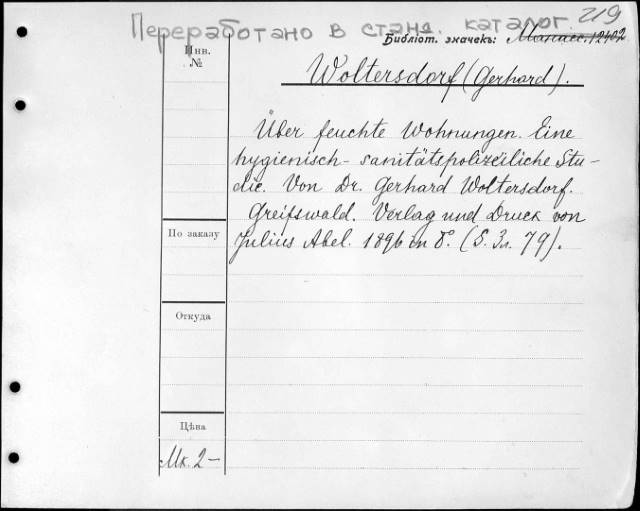 Переработано в станд. каталог. 219
Библіот. значекъ: 12402
Инв.
№
Woltersdorf (Gerhard).
Über feuchte Wohnungen. Eine
hygienisch-sanitätspolizeiliche Stu-
die. Von Dr. Gerhard Woltersdorf.
Greifswald. Verlag und Druck von
Julius Abel. 1896 in 8. (S. 79).
По заказу
Откуда
Цѣна
Мк. 2-